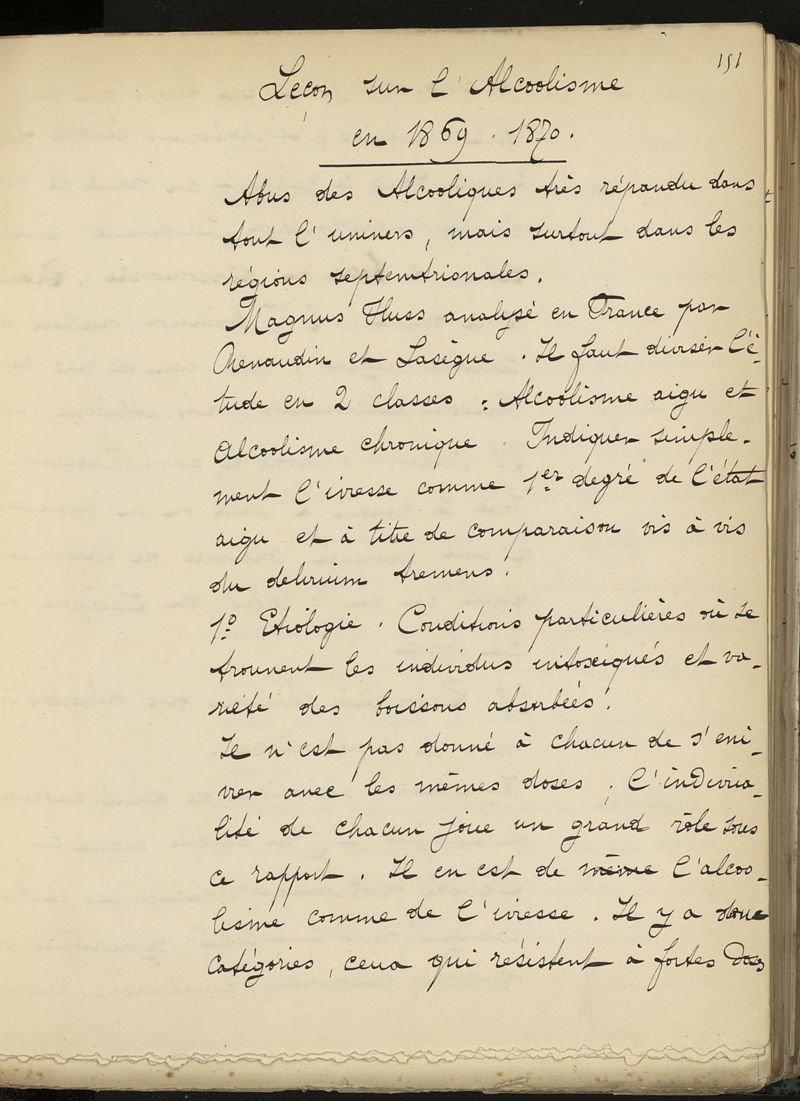 151
Leçon sur l'Alcoolisme
en 1869. 1870.
Abus des Alcooliques très répandu dans
tout l'univers, mais surtout dans les
régions septentrionales.
Magnus Huss analysé en France par
Renaudin et Lasègue. Il faut diviser l'é-
tude en 2 classes : Alcoolisme aigu et
Alcoolisme chronique. Indiquer simple-
ment l'ivresse comme 1er degré de l'état
aigu et à titre de comparaison vis à vis
du delirium tremens.
1o Etiologie. Conditions particulières où se
trouvent les individus intoxiqués et va-
riété des boissons absorbées.
Il n'est pas donné à chacun de s'eni-
vrer avec les mêmes doses. L'individua-
lité de chacun joue un grand rôle sous
ce rapport. Il en est de même l'alcoo-
lisme comme de l'ivresse. Il y a donc
catégories, ceux qui résistent à fortes doses